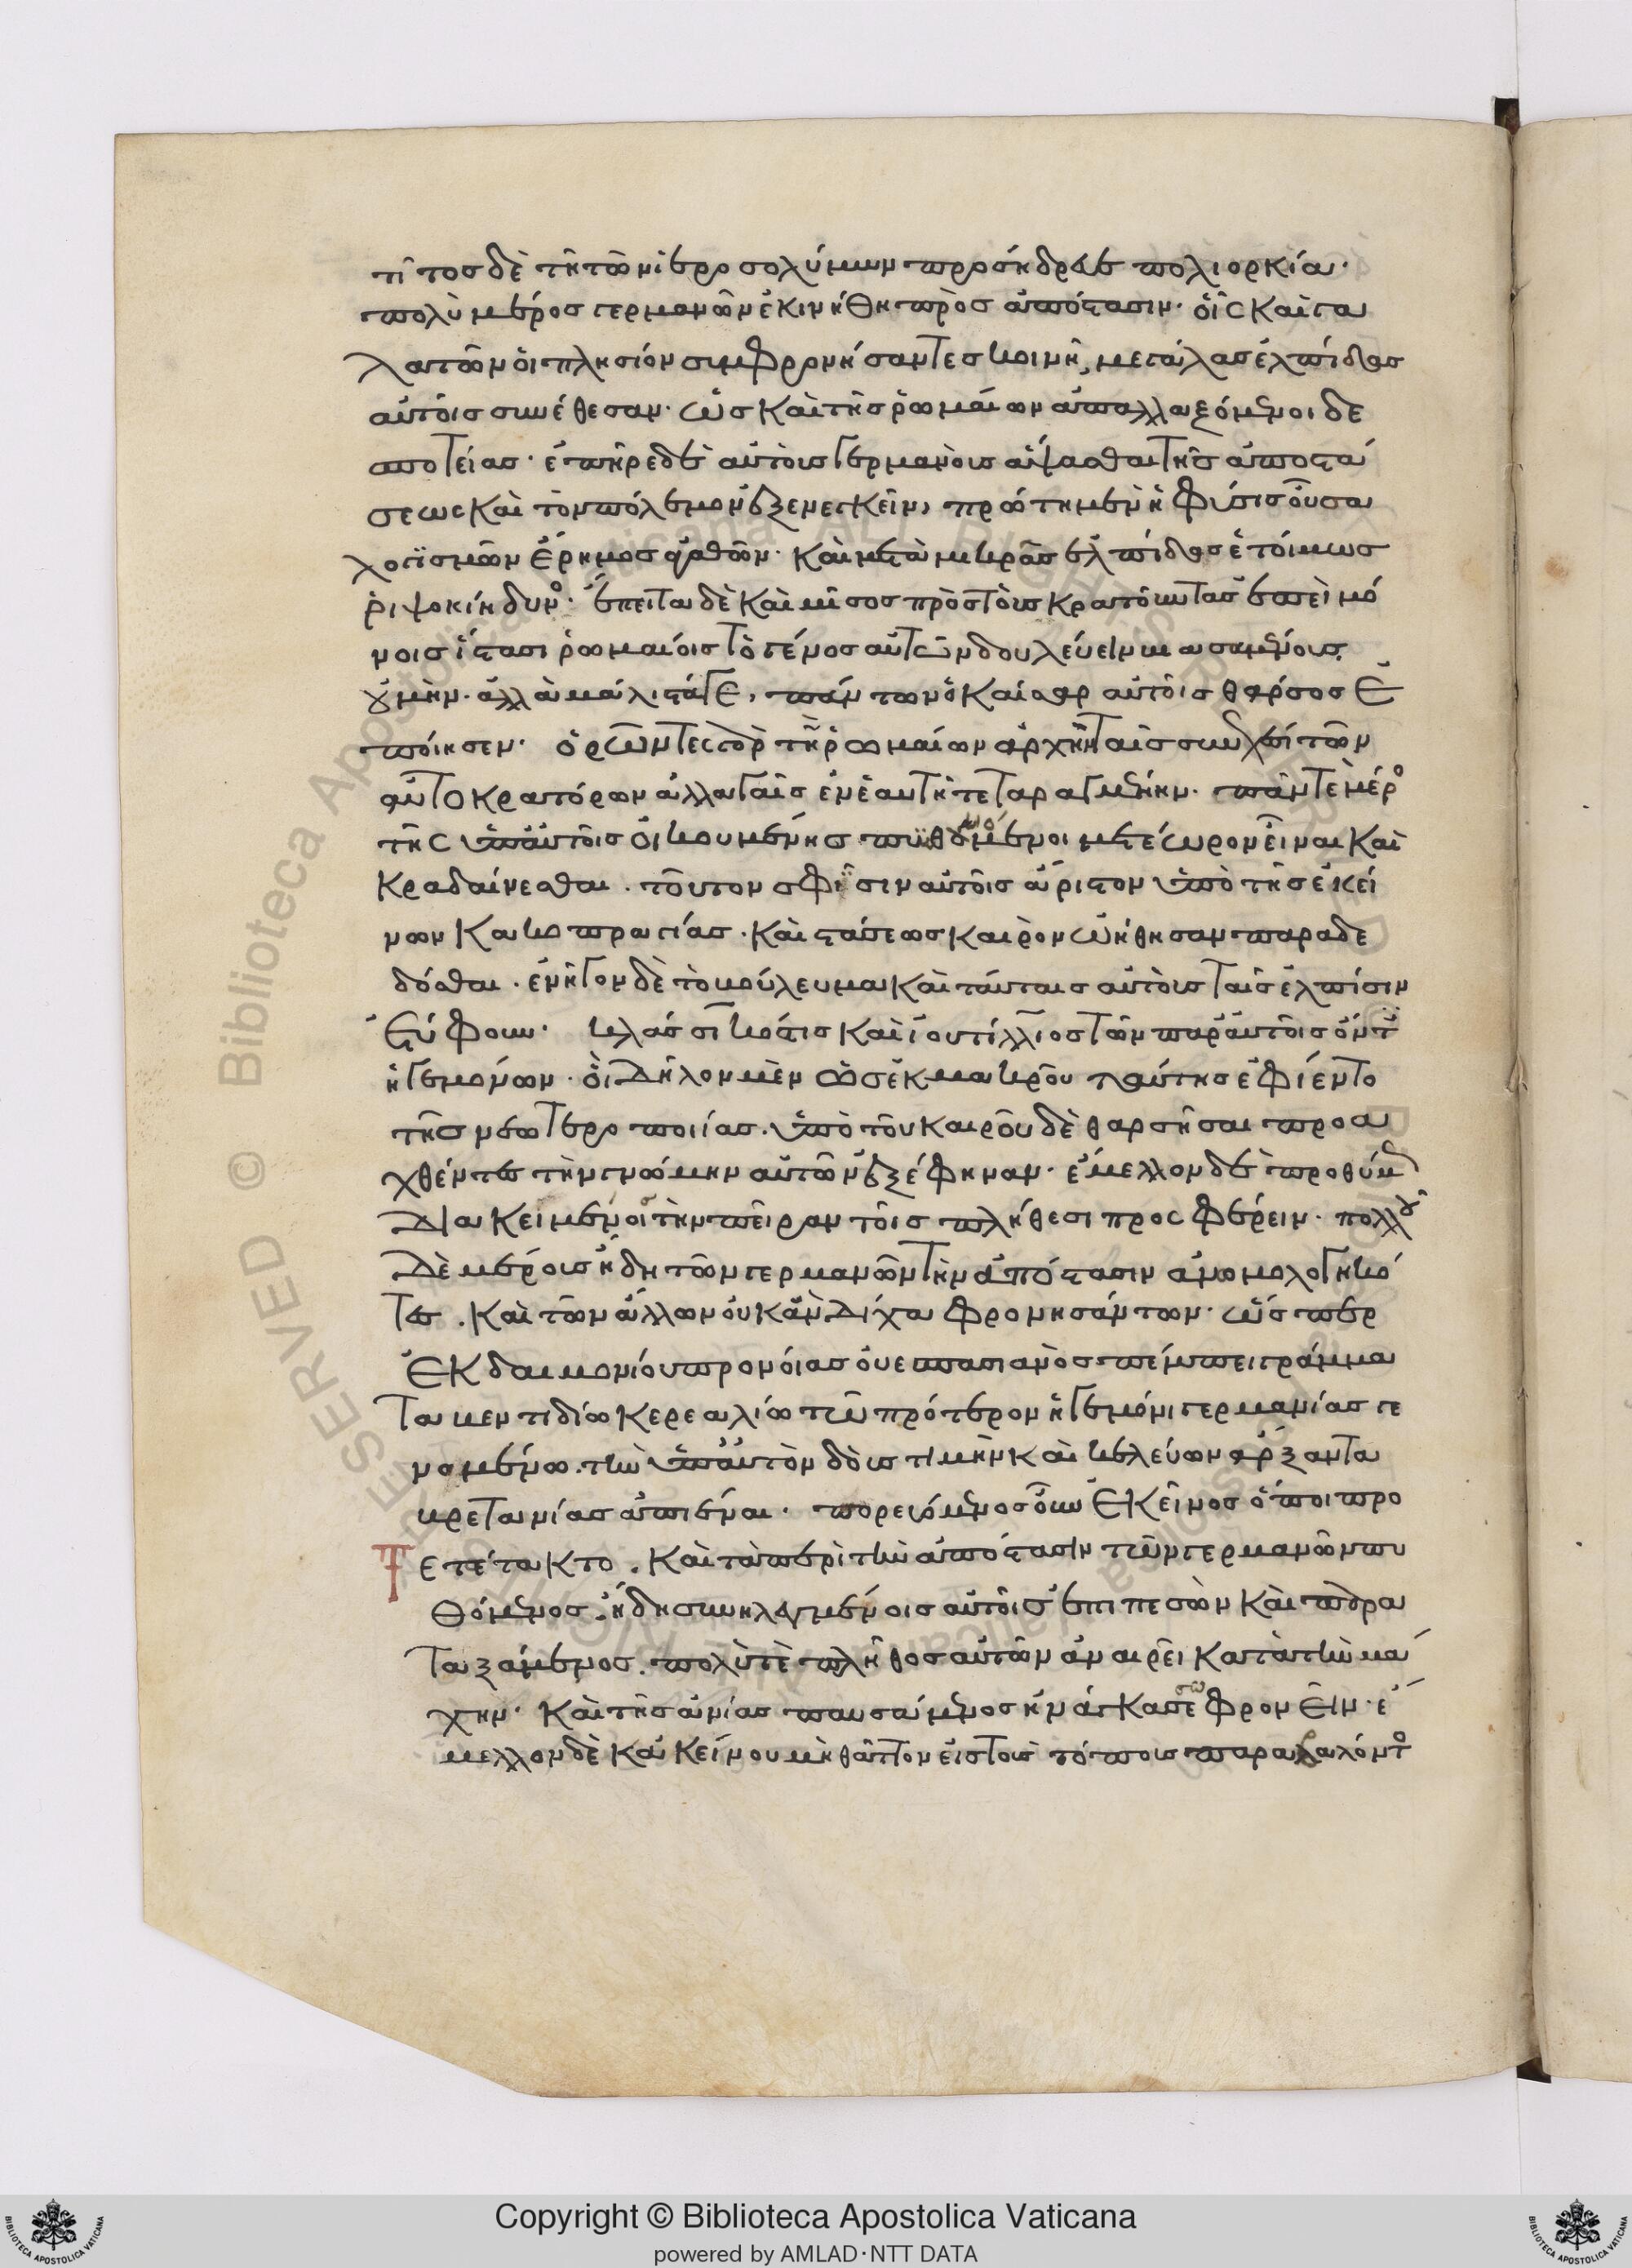 τίτος δὲ τῆ τῶν ἱεροσολύμων προσήδρευε πολιορκία·
πολὺ μέρος γερμανῶν ἐκινήθη πρὸς ἀπόστασιν· οἷς καὶ γα
λατῶν οἱ πλησίον συμφρονήσαντες κοινῆ, μεγάλας ἐλπίδας
αὐτοῖς συνέθεσαν· ὡς καὶ τῆς ῥωμαίων ἀπαλλαξόμενοι δε
σποτείας· ἐπῆρε δὲ αὐτοὺς γερμανοὺς ἅψασθαι τῆς ἀποστά
σεως καὶ τὸν πόλεμον ἐξενεγκεῖν, πρώτη μὲν ἡ φύσις οὖσα
λογϊσμῶν ἔρημος ἀγαθῶν· καὶ μετὰ μικρᾶς ἐλπίδος ἑτοίμως
ῥιψοκίνδυνος· ἔπειτα δὲ καὶ μῖσος πρὸς τοὺς κρατοῦντας ἐπεὶ μό
νοις ἴσασι ῥωμαίοις τὸ γένος αὐτῶν δουλεύειν βιασαμένοις,
οὐ μὴν ἀλλὰ μάλιστάγε, πάντων ὁ καίσαρ αὐτοῖς θάρσος ἐ
ποίησεν· ὁρῶντες γὰρ τὴν ῥωμαίων ἀρχὴν ταῖς συνεχέσι τῶν
αὐτοκρατόρων ἀλλαγαῖς ἐν ἑαυτῆ τεταραγμένην· πᾶν τε μέρος
τῆς ὑπ' αὐτοῖς οἰκουμένης πυθόμενοι μετέωρον εἶναι καὶ
κραδαίνεσθαι· τοῦτον σφίσιν αὐτοῖς ἄριστον ὑπὸ τῆς ἐκεί
νων κακοπραγίας· καὶ στάσεως καιρὸν ὠήθησαν παραδε
δόσθαι· ἐνῆγον δὲ τὸ βούλευμα καὶ ταύταις αὐτοὺς ταῖς ἐλπίσιν
ἐτύφουν· κλάσσικός τις καὶ ἰουτίλλιος τῶν παρ' αὐτοῖς ὄντες
ἡγεμόνων· οἳ δῆλον μὲν ὡς ἐκ μακροῦ ταύτης ἐφίεντο
τῆς νεωτεροποιίας· ὑπὸ τοῦ καιροῦ δὲ θαρσῆσαι προα
χθέντες τὴν γνώμην αὐτῶν ἐξέφηναν· ἔμελλον δὲ προθύμως
διακείμενοι τὴν πεῖραν τοῖς πλήθεσι προσφέρειν· πολλοῦ
δὲ μέρους ἤδη τῶν γερμανῶν τὴν ἀπόστασιν ἀνωμολογηκό
τες· καὶ τῶν ἄλλων οὐκ ἂν δίχα φρονησάντων· ὥσπερ
ἐκ δαιμονίου προνοίας οὐεσπασιανὸς πέμπει γράμμα
τα βεντιδίω κερεαλίω τῶ πρότερον ἡγεμόνι γερμανίας γε
νομένω· τὴν ὕπατον δοὺς τιμὴν καὶ κελεύων ἄρξαντα
βρεταννίας ἀπιέναι· πορευόμενος οὖν ἐκεῖνος ὅποι προ
ετέτακτο· καὶ τὰ περὶ τὴν ἀπόστασιν τῶν γερμανῶν πυ
θόμενος· ἤδη συνειλεγμένοις αὐτοῖς ἐπιπεσὼν καὶ παρα
ταξάμενος· πολύ τε πλῆθος αὐτῶν ἀναιρεῖ κατὰ τὴν μά
χην· καὶ τῆς ἀνίας παυσάμενος ἠνάγκασε σωφρονεῖν· ἔ
μελλον δὲ κἀκείνου μὴ θᾶττον εἰς τοὺς τόπους παραβαλόντος